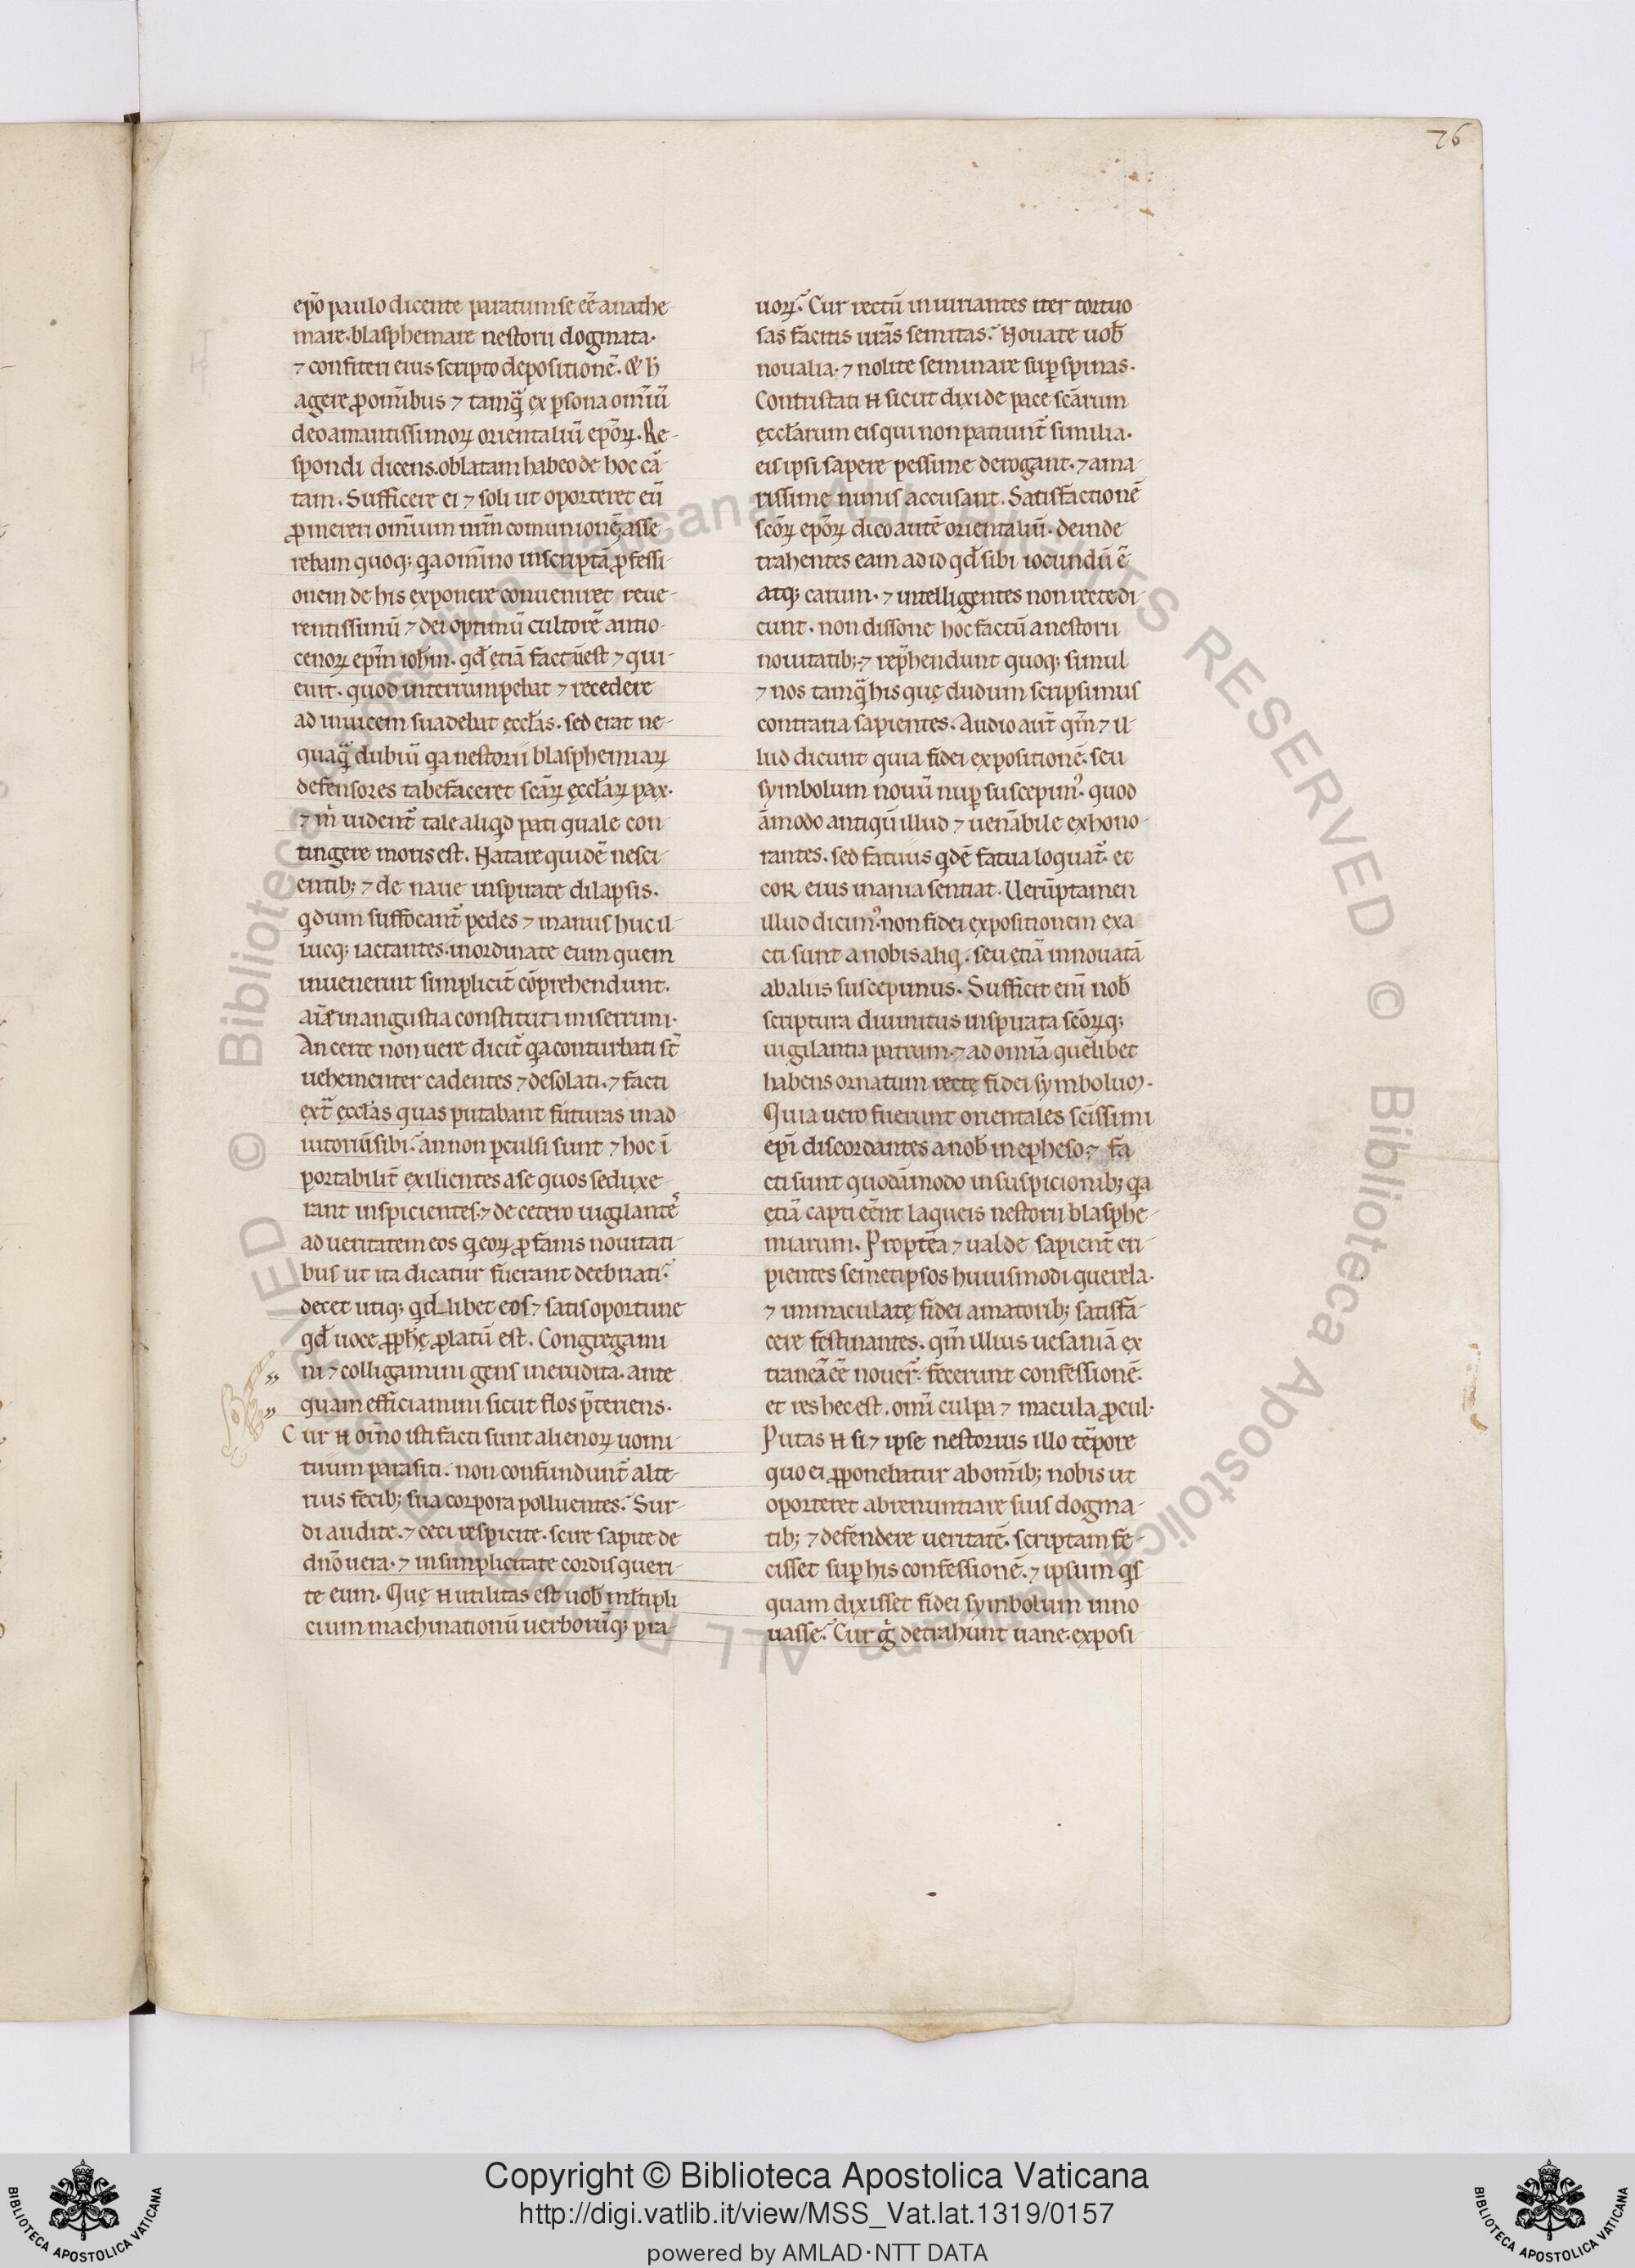 76
ep̄o paulo dicente paratum se eē anathe-
mare. blasphemare nestorii dogmata.
⁊ confiteri eius scripto depositionē. & h̄
agere ꝓ om̄ibus ⁊ tamq̄ ex ꝑsona om̄iū
deo amantissimoꝝ orientaliū ep̄oꝝ. Re-
spondi dicens. oblatam habeo de hoc car̄-
tam. Sufficere ei ⁊ soli ut oporteret eū
ꝓmereri omnium nr̄m comunionē; asse
rebam quoq; q̇a om̄ino inscriptā ꝓfessi-
onem de his exponere conueniret reue-
rentissimū ⁊ dei optimū cultorē antio-
cenoꝝ ep̄m ioh̄m. qđ etiā factū est ⁊ qui-
euit. quod interrumpebat ⁊ recedere
ad inuicem suadebat ęccl̄as. sed erat ne-
quaq̄ dubiū q̇a nestorii blasphemiaꝝ
defensores tabefaceret sc̄aꝝ ęccl̄aꝝ pax.
⁊ ṁ uident᷑ tale aliq̇d pati quale con-
tingere moris est. Natare quidē nesci-
entib; ⁊ de naue insperate dilapsis.
q̇dum suffocant᷑ pedes ⁊ manus huc il-
lucq; iactantes. inordinate eum quem
inuenerint simplicit᷑ cōprehendunt.
aīæ in angustia constituti miserrimi.
An certe non uere dicit᷑ q̇a conturbati st̄
uehementer cadentes ⁊ desolati. ⁊ facti
ext᷑ ęccl̄as quas putabant futuras in ad
iutoriū sibi. an non ꝑculsi sunt ⁊ hoc ī
portabilit᷑ exilientes a se quos seduxe-
rant inspicientes. ⁊ de cetero uigilantē
ad ueritatem eos q̇ eoꝝ ꝓfanis nouitati-
bus ut ita dicatur fuerant deebriati.
decet utiq; qđ libet eos ⁊ satis oportune
qđ uoce ꝓph̄ę ꝓlatū est. Congregami
ni ⁊ colligamini gens inerudita. ante
quam efficiamini sicut flos p̄teriens.
Cur n̄ om̄o isti facti sunt alienoꝝ uomi-
tuum parasiti. non confundunt᷑ alte-
rius fecib; sua corpora polluentes. Sur-
di audite. ⁊ ceci respicite. scire sapite de
dn̄o uera. ⁊ in simplicitate cordis queri-
te eum. Quę n̄ utilitas est uob̄ ml̄tipli
cium machinationū uerborūq; pra-
uoꝝ. Cur rectū iniuriantes iter tortuo-
sas facitis ur̄as semitas. Nouate uob̄
noualia. ⁊ nolite seminare suꝑ spinas.
Contristati n̄ sicut dixi de pace sc̄arum
ęccl̄arum eis qui non patiunt᷑ similia.
eis ipsi sapere pessime derogant. ⁊ ama-
rissime nimis accusant. Satisfactionē
sc̄oꝝ ep̄oꝝ dico autē orientaliū. deinde
trahentes eam ad id qđ sibi iocundū ē
atq; carum. ⁊ intelligentes non recte di-
cunt. non dissone hoc factū a nestorii
nouitatib;. ⁊ rep̄hendunt quoq; simul
⁊ nos tamq̄ his quę dudum scripsimus
contraria sapientes. Audio aut̄ qm̄ ⁊ il-
lud dicunt quia fidei expositionē. seu
symbolum nouū nuꝑ suscepim᷒. quod
āmodo antiqū illud ⁊ uenābile exhono-
rantes. sed fatuus q̇dē fatua loquat᷑. et
coR eius inania sentiat. Uerūptamen
illud dicim᷒. non fidei expositionem exa
cti sunt a nobis aliq̇. seu etiā innouatā
ab aliis suscepimus. Sufficit eni᷑ nob̄
scriptura diuinitus inspirata sc̄oꝝq;
uigilantia patrum. ⁊ ad omīa quēlibet
habens ornatum rectę fidei symbolum.
Quia uero fuerunt orientales sc̄issimi
ep̄i discordantes a nob̄ in epheso. ⁊ fa
cti sunt quodāmodo in suspicionib; q̇a
etiā capti eēnt laqueis nestorii blasphe-
miarum. Propt̄ea ⁊ ualde sapient᷑ eri-
pientes semetipsos huiusmodi querela.
⁊ inmaculatę fidei amatorib; satisfa-
cere festinantes. qm̄ illius uesaniā ex
traneā eē nouer᷑. fecerunt confessionē.
et res hec est. omi᷑ culpa ⁊ macula ꝓcul.
Putas n̄ si ⁊ ipse nestorius illo tēpore
quo ei ꝓponebatur ab omib; nobis ut
oporteret abrenuntiare suis dogma-
tib; ⁊ defendere ueritatē. scriptam fe-
cisset suꝑ his confessionē. ⁊ ipsum q̇s
quam dixisset fidei symbolum inno
uasse. Cur g̊ detrahunt uane. exposi-
© Biblioteca Apostolica Vaticana ALL RIGHTS RESERVED © Biblioteca Apostolica Vaticana ALL RIGHTS RESERVED
Copyright © Biblioteca Apostolica Vaticana
http://digi.vatlib.it/view/MSS_Vat.lat.1319/0157
powered by AMLAD·NTT DATA
BIBLIOTECA APOSTOLICA VATICANA
BIBLIOTECA APOSTOLICA VATICANA